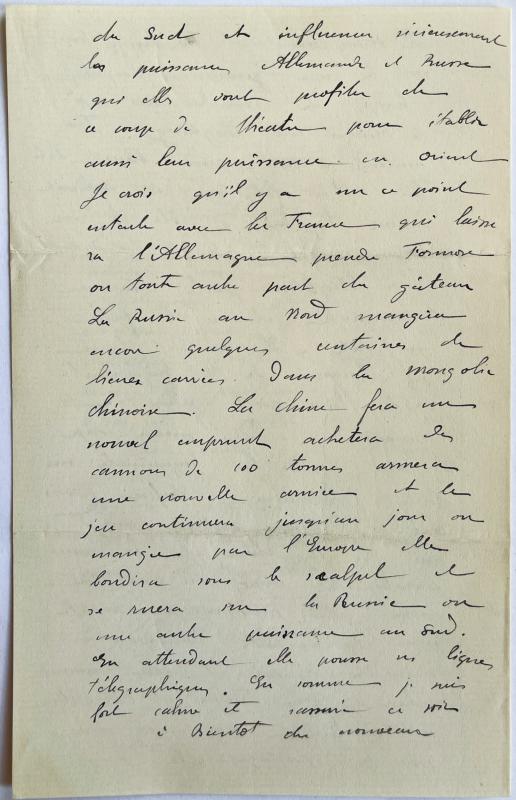 du Sud et influencer sérieusement
les puissances Allemande et Russe
qui elles vont profiter de
ce coup de théatre pour établir
aussi leur puissance en orient
Je crois qu'il y a sur ce point
entente avec la France qui laisse
ra l'Allemagne prendre Formose
ou toute autre part du gâteau
La Russie au Nord mangera
encore quelques centaines de
lieues carrées dans la Mongolie
chinoise. La Chine fera un
nouvel emprunt achetera des
cannons de 100 tonnes armera
une nouvelle armée et le
jeu continuera jusqu'au jour ou
mangée par l'Europe elle
bondira sous le scalpel et
se ruera sur la Russie ou
une autre puissance au Sud.
En attendant elle pousse ses lignes
télégraphiques. En somme je suis
fort calme et rassuré ce soir
à Bientot du nouveau